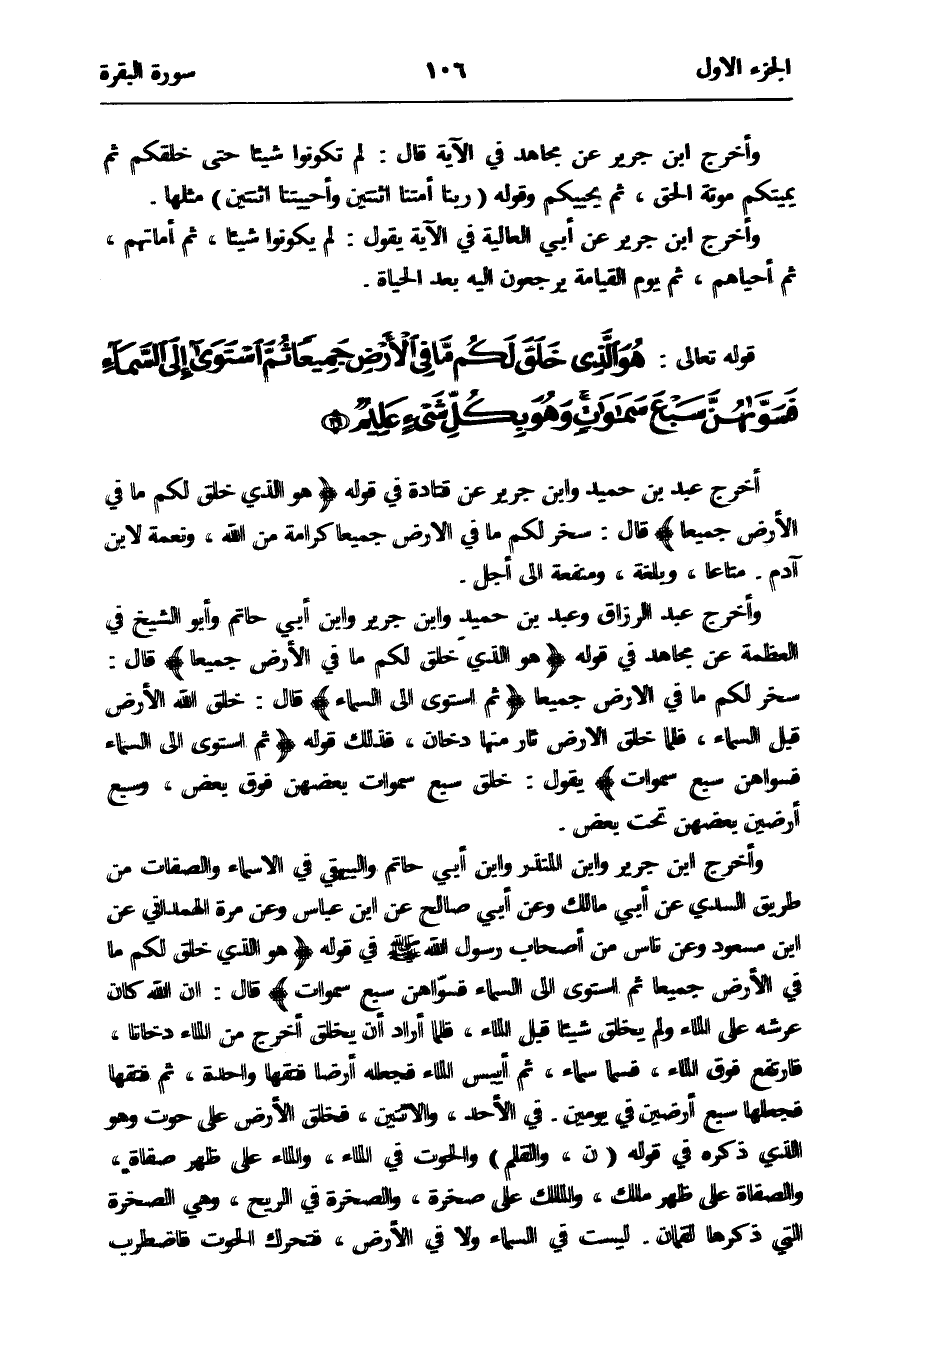 الجزء الاول ١٠٦ سورة البقرة
وأخرج ابن جرير عن مجاهد في الآية قال : لم تكونوا شيئا حتى خلقكم ثم
يميتكم موتة الحق ، ثم يحييكم وقوله ( ربنا أمتنا اثنتين وأحييتنا اثنتين ) مثلها .
وأخرج ابن جرير عن أبي العالية في الآية يقول : لم يكونوا شيئا ، ثم أماتهم ،
ثم أحياهم ، ثم يوم القيامة يرجعون اليه بعد الحياة .
قوله تعالى : هُوَ الَّذِى خَلَقَ لَكُم مَّا فِي الْأَرْضِ جَمِيعًا ثُمَّ اسْتَوَىٰ إِلَى السَّمَاءِ
فَسَوَّىٰهُنَّ سَبْعَ سَمَٰوَاتٍ وَهُوَ بِكُلِّ شَىْءٍ عَلِيمٌ ﴿٢٩﴾
أخرج عبد بن حميد وابن جرير عن قتادة في قوله ﴿ هو الذي خلق لكم ما في
الأرض جميعا ﴾ قال : سخر لكم ما في الارض جميعا كرامة من الله ، ونعمة لابن
آدم . متاعا ، وبلغة ، ومنفعة الى أجل .
وأخرج عبد الرزاق وعبد بن حميد وابن جرير وابن أبي حاتم وأبو الشيخ في
العظمة عن مجاهد في قوله ﴿ هو الذي خلق لكم ما في الأرض جميعا ﴾ قال :
سخر لكم ما في الارض جميعا ﴿ ثم استوى الى السماء ﴾ قال : خلق الله الأرض
قبل السماء ، فلما خلق الارض ثار منها دخان ، فذلك قوله ﴿ ثم استوى الى السماء
فسواهن سبع سموات ﴾ يقول : خلق سبع سموات بعضهن فوق بعض ، وسبع
أرضين بعضهن تحت بعض .
وأخرج ابن جرير وابن المنذر وابن أبي حاتم والبيهقي في الاسماء والصفات من
طريق السدي عن أبي مالك وعن أبي صالح عن ابن عباس وعن مرة الهمداني عن
ابن مسعود وعن ناس من أصحاب رسول الله ﷺ في قوله ﴿ هو الذي خلق لكم ما
في الأرض جميعا ثم استوى الى السماء فسوّاهن سبع سموات ﴾ قال : ان الله كان
عرشه على الماء ولم يخلق شيئا قبل الماء ، فلما أراد أن يخلق أخرج من الماء دخانا ،
فارتفع فوق الماء ، فسما سماء ، ثم أيبس الماء فجعله أرضا فتقها واحدة ، ثم فتقها
فجعلها سبع أرضين في يومين . في الأحد ، والاثنين ، فخلق الأرض على حوت وهو
الذي ذكره في قوله ( ن ، والقلم ) والحوت في الماء ، والماء على ظهر صفاة ،
والصفاة على ظهر ملك ، والملك على صخرة ، والصخرة في الريح ، وهي الصخرة
التي ذكرها لقمان . ليست في السماء ولا في الأرض ، فتحرك الحوت فاضطرب